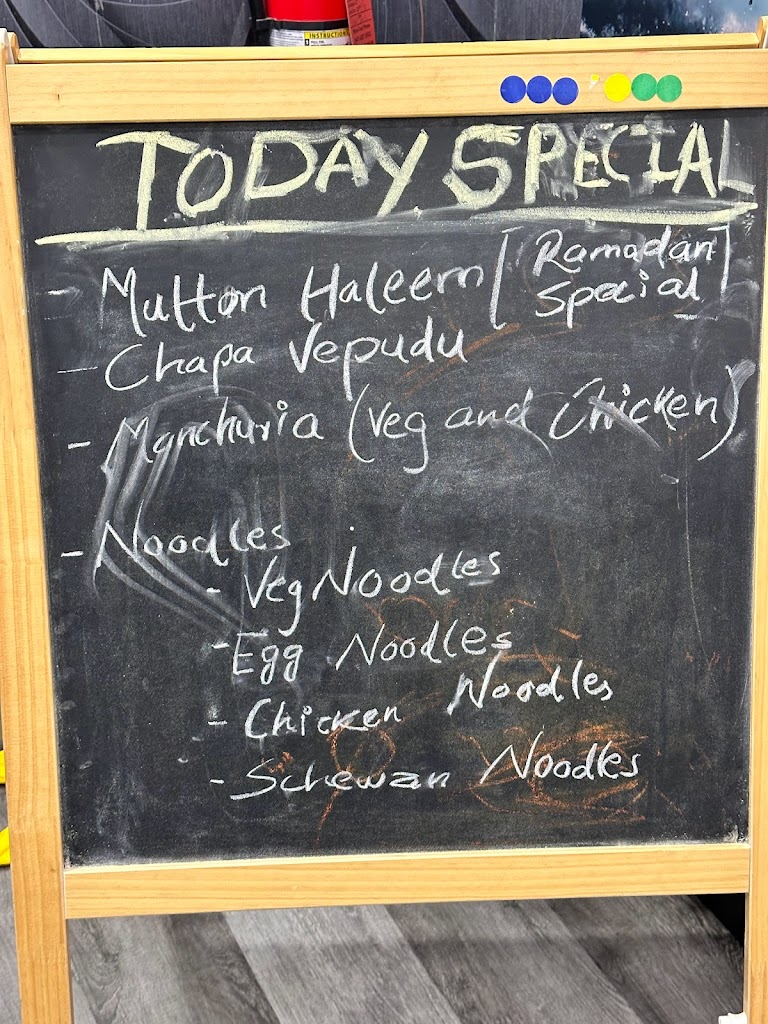 INSTRUCTION
TODAY SPECIAL
- Mutton Haleem [Ramadan Special]
- Chapa Vepudu
- Manchuria (Veg and Chicken)
- Noodles
- Veg Noodles
- Egg Noodles
- Chicken Noodles
- Schewan Noodles